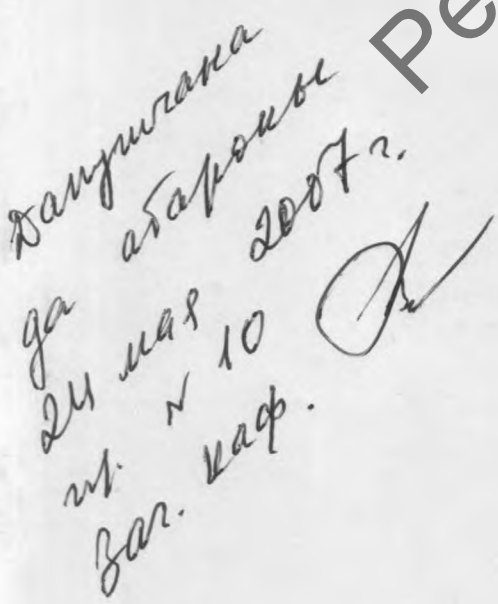 Дапушчана
да абароны
24 мая 2007 г.
пр. N 10
Заг. каф.
Ре